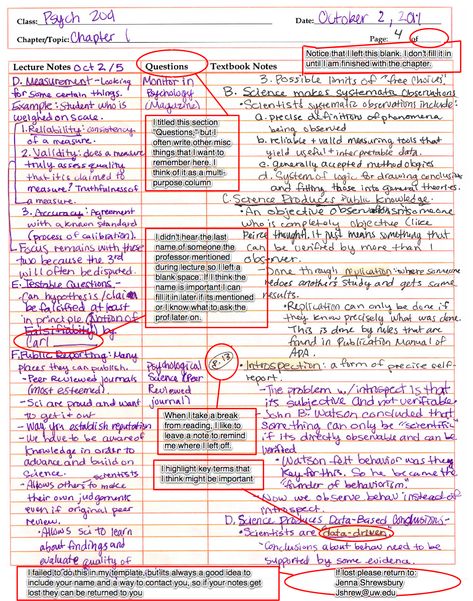 Class: Psych 209
Date: October 2, 2011
Chapter/Topic: Chapter 1
Page: 4 of
Notice that I left this blank. I don't fill it in
until I am finished with the chapter.
Lecture Notes Oct 2/5
D. Measurement - Looking
for some certain things.
Example: Student who is
weighed on scale.
1. Reliability: consistency
of a measure.
2. Validity: does a measure
truly assess quality
that it is claimed to
measure? Truthfulness of
a measure.
3. Accuracy: Agreement
with a known standard
(process of calibration).
Focus remains with these
two because the 3rd
will often be disputed.
E. Testable Questions -
- Can hypothesis/claim
be falsified at least
in principle (Notion of
Falsifiability) by
Carl
F. Public Reporting: Many
places they can publish.
- Peer Reviewed journals
(most esteemed).
- Sci are proud and want
to get it out
- Way 4 sci establish reputation
- We have to be aware of
knowledge in order to
advance and build on
science.
- Allows others to make scientists
their own judgements
even if original peer
review.
• Allows sci to learn
about findings and
evaluate quality of
Questions
Monitor in
Psychology
(Magazine)
I titled this section
"Questions," but I
often write other misc
things that I want to
remember here. I
think of it as a multi-
purpose column
I didn't hear the last
name of someone the
professor mentioned
during lecture so I left a
blank space. If I think the
name is important I can
fill it in later if its mentioned
or I know what to ask the
prof later on.
Psychological
Science & Peer
Reviewed
journal
8:13
When I take a break
from reading, I like to
leave a note to remind
me where I left off.
I highlight key terms that
I think might be important
Textbook Notes
3. Possible limits of "free choices".
B. Science makes systematic observations
• Scientists systematic observations include:
a. precise definitions of phenomena
being observed
b. reliable + valid measuring tools that
yield useful + interpretable data.
c. Generally accepted methodologies
d. System of logic for drawing conclusions
and fitting those into general theories.
C. Science Produces Public Knowledge:
• An objective observation is someone
who is completely objective like
Peirce thought, it just means something that
can be verified by more than 1
observer.
- Done through replication - where someone
redoes anothers study and gets same
results.
• Replication can only be done if
they know precisely what was done.
This is done by rules that are
found in Publication Manual of
APA.
• Introspection: a form of precise self-
report.
- The problem w/ introspect is that
its subjective and not verifiable
- John B. Watson concluded that
something can only be "scientific"
if its directly observable and can be
verified
• Watson felt behavior was the
key for this. So he became the
"founder of behaviorism"
- Now we observe behav instead of
introspect.
D. Science Produces Data-Based Conclusions-
• Scientists are data-driven
- Conclusions about behav need to be
supported by some evidence.
I failed to do this in my template, but its always a good idea to
include your name and a way to contact you, so if your notes get
lost they can be returned to you
If lost please return to:
Jenna Shrewsbury
Jshrew@uw.edu